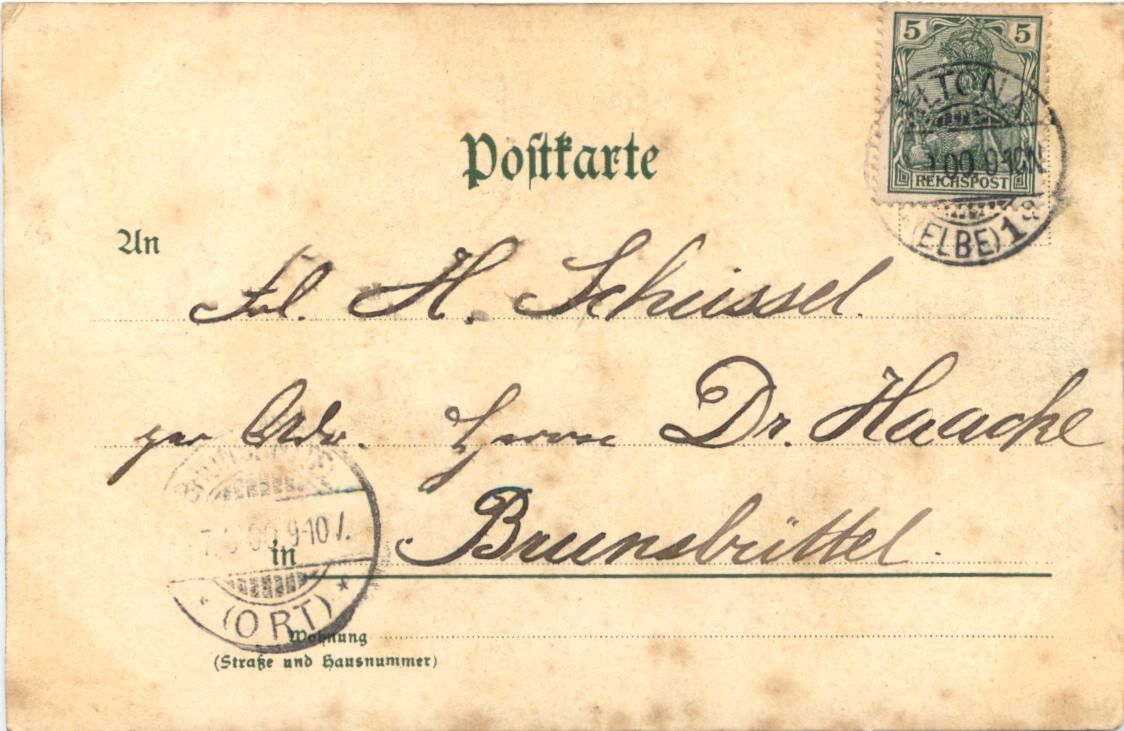 5 5
REICHSPOST
ALTONA
00.9-10N
(ELBE) 1
Postkarte
An
Frl. H. Scheissel.
per Adr. Herrn Dr. Haacke
in Brunsbüttel.
9-10
(ORT)
Wohnung
(Straße und Hausnummer)